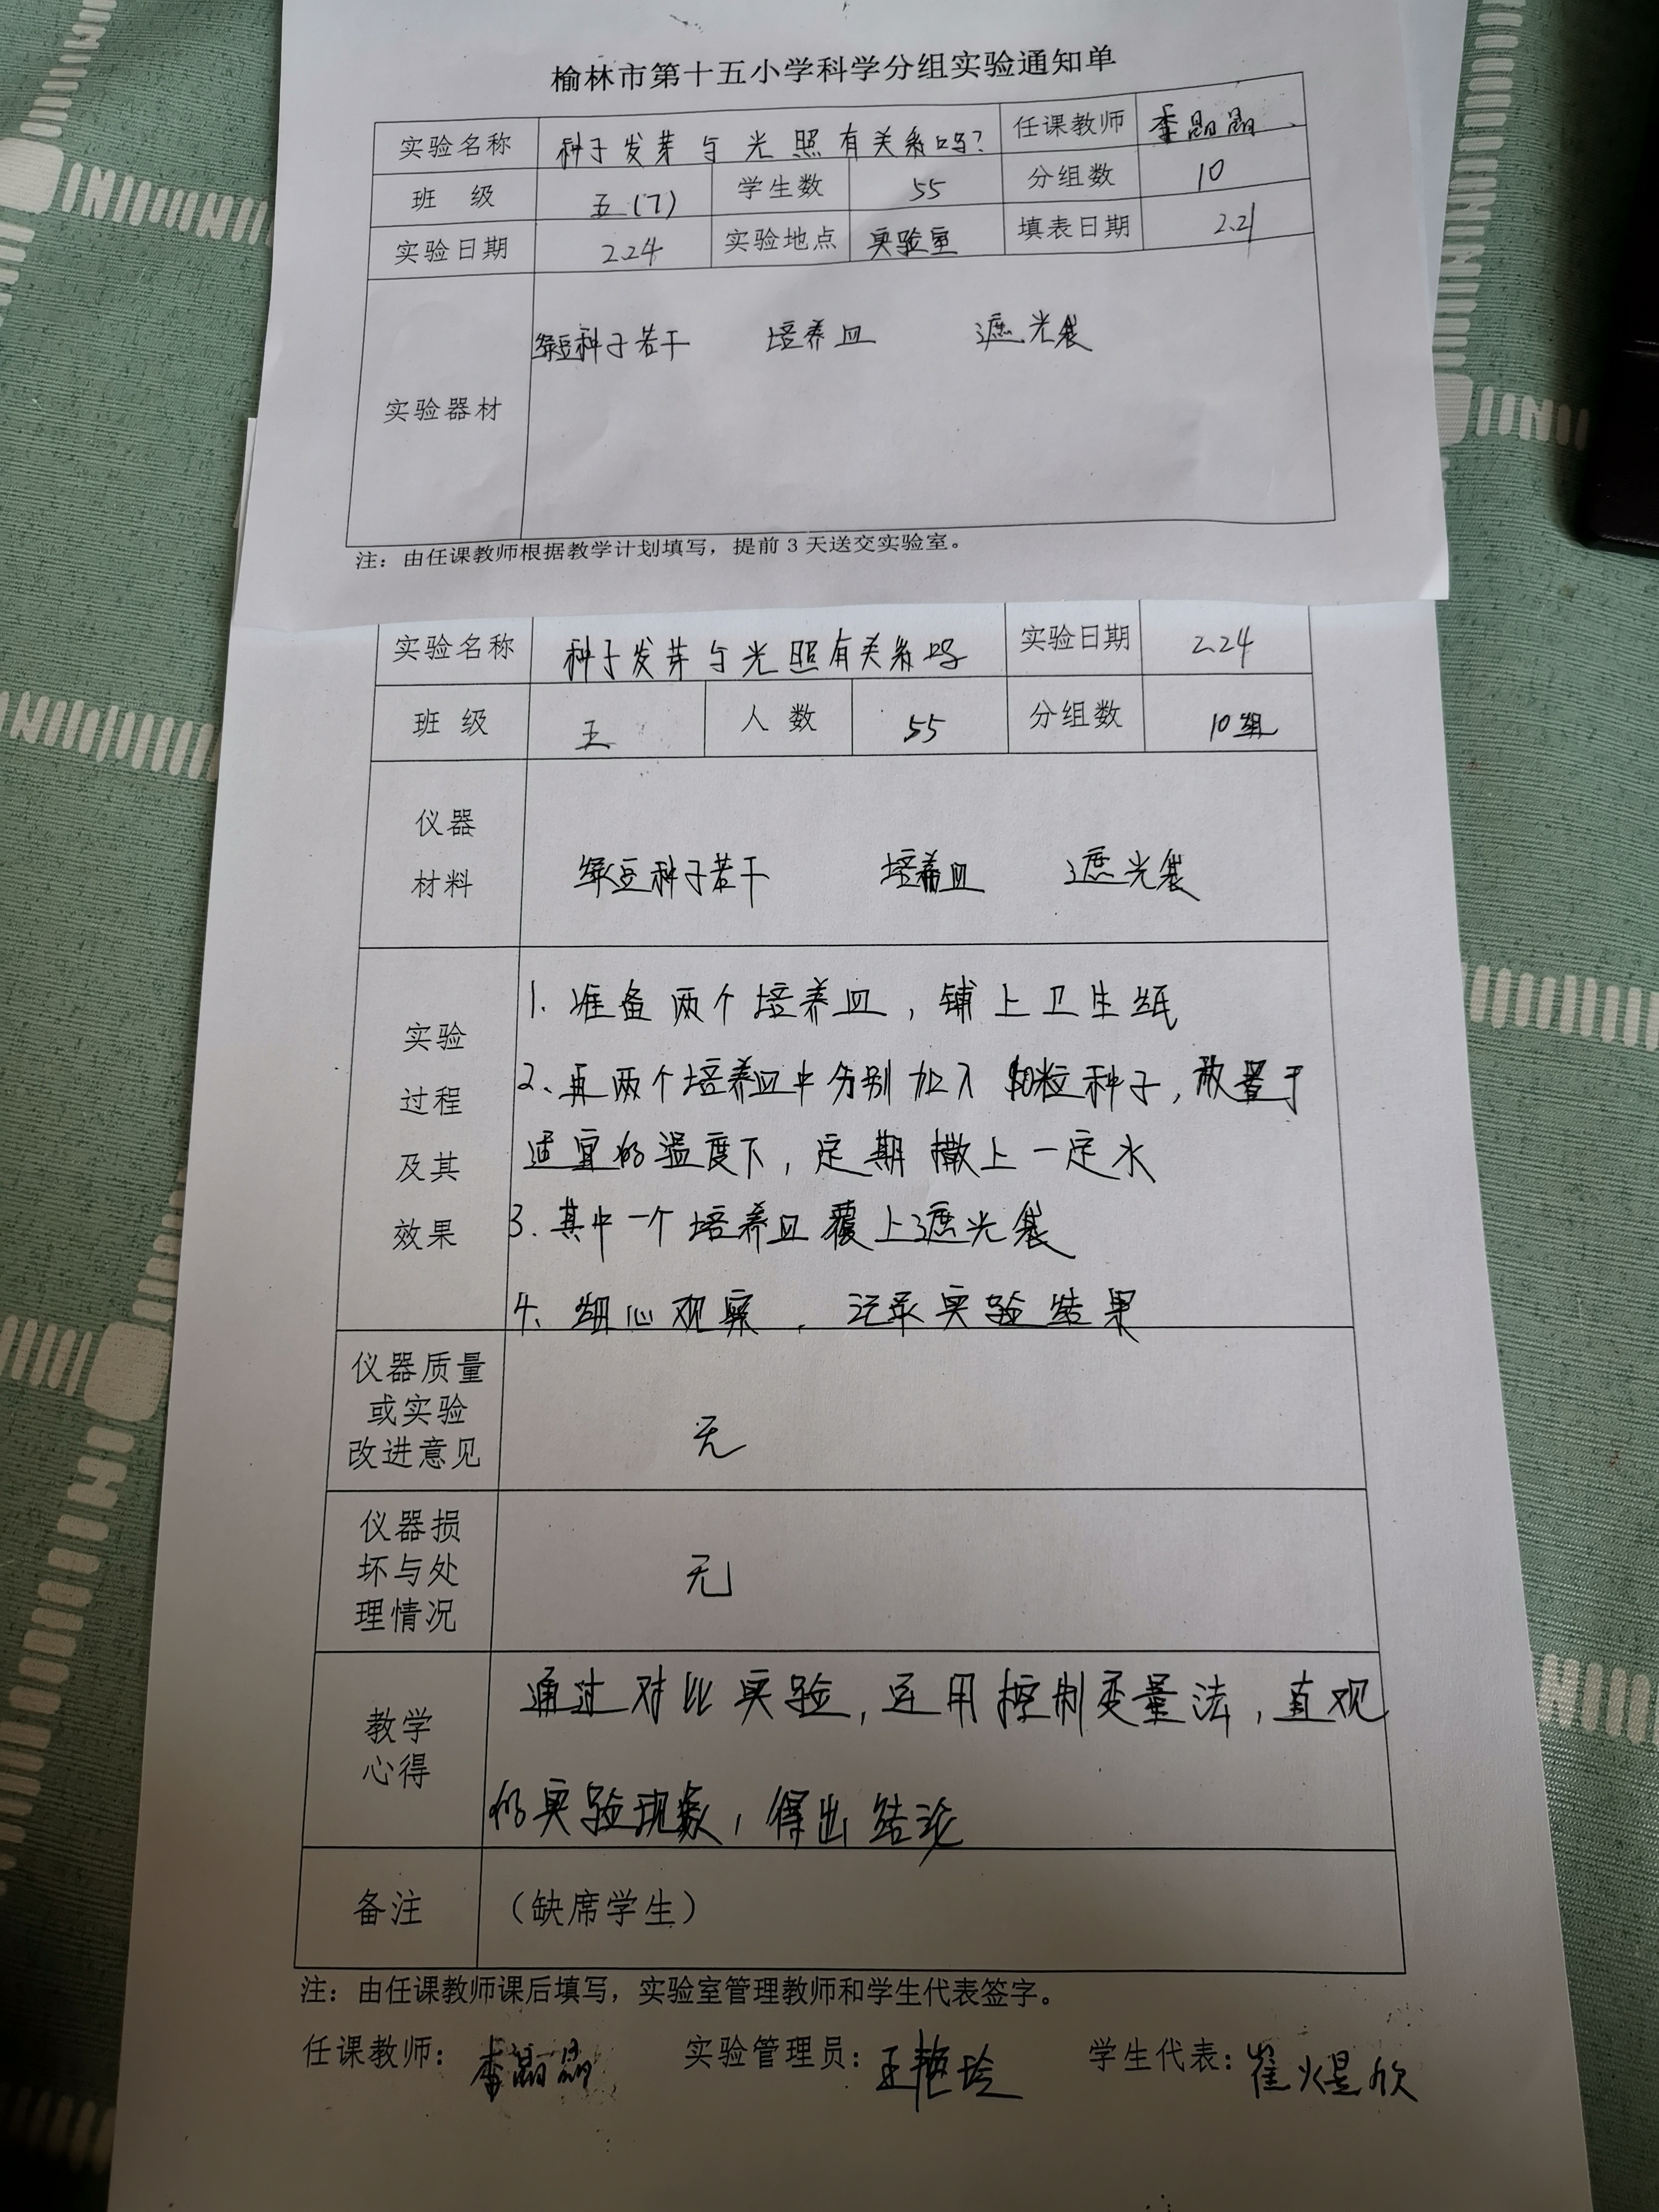 榆林市第十五小学科学分组实验通知单
实验名称 种子发芽与光照有关系吗? 任课教师 李晶晶
班 级 五(7) 学生数 55 分组数 10
实验日期 2.24 实验地点 实验室 填表日期 2.21
实验器材 绿豆种子若干 培养皿 遮光袋
注：由任课教师根据教学计划填写，提前 3 天送交实验室。
实验名称 种子发芽与光照有关系吗 实验日期 2.24
班 级 五 人 数 55 分组数 10组
仪器
材料 绿豆种子若干 培养皿 遮光袋
实验
过程
及其
效果
1. 准备两个培养皿，铺上卫生纸
2、再两个培养皿中分别加入 粒种子，放置于
适宜的温度下，定期撒上一定水
3. 其中一个培养皿覆上遮光袋
4、细心观察，记录实验结果
仪器质量
或实验
改进意见
无
仪器损
坏与处
理情况
无
教学
心得
通过对比实验，运用控制变量法，直观
的实验现象，得出结论
备注 （缺席学生）
注：由任课教师课后填写，实验室管理教师和学生代表签字。
任课教师：李晶晶 实验管理员：王艳玲 学生代表：崔煜欣